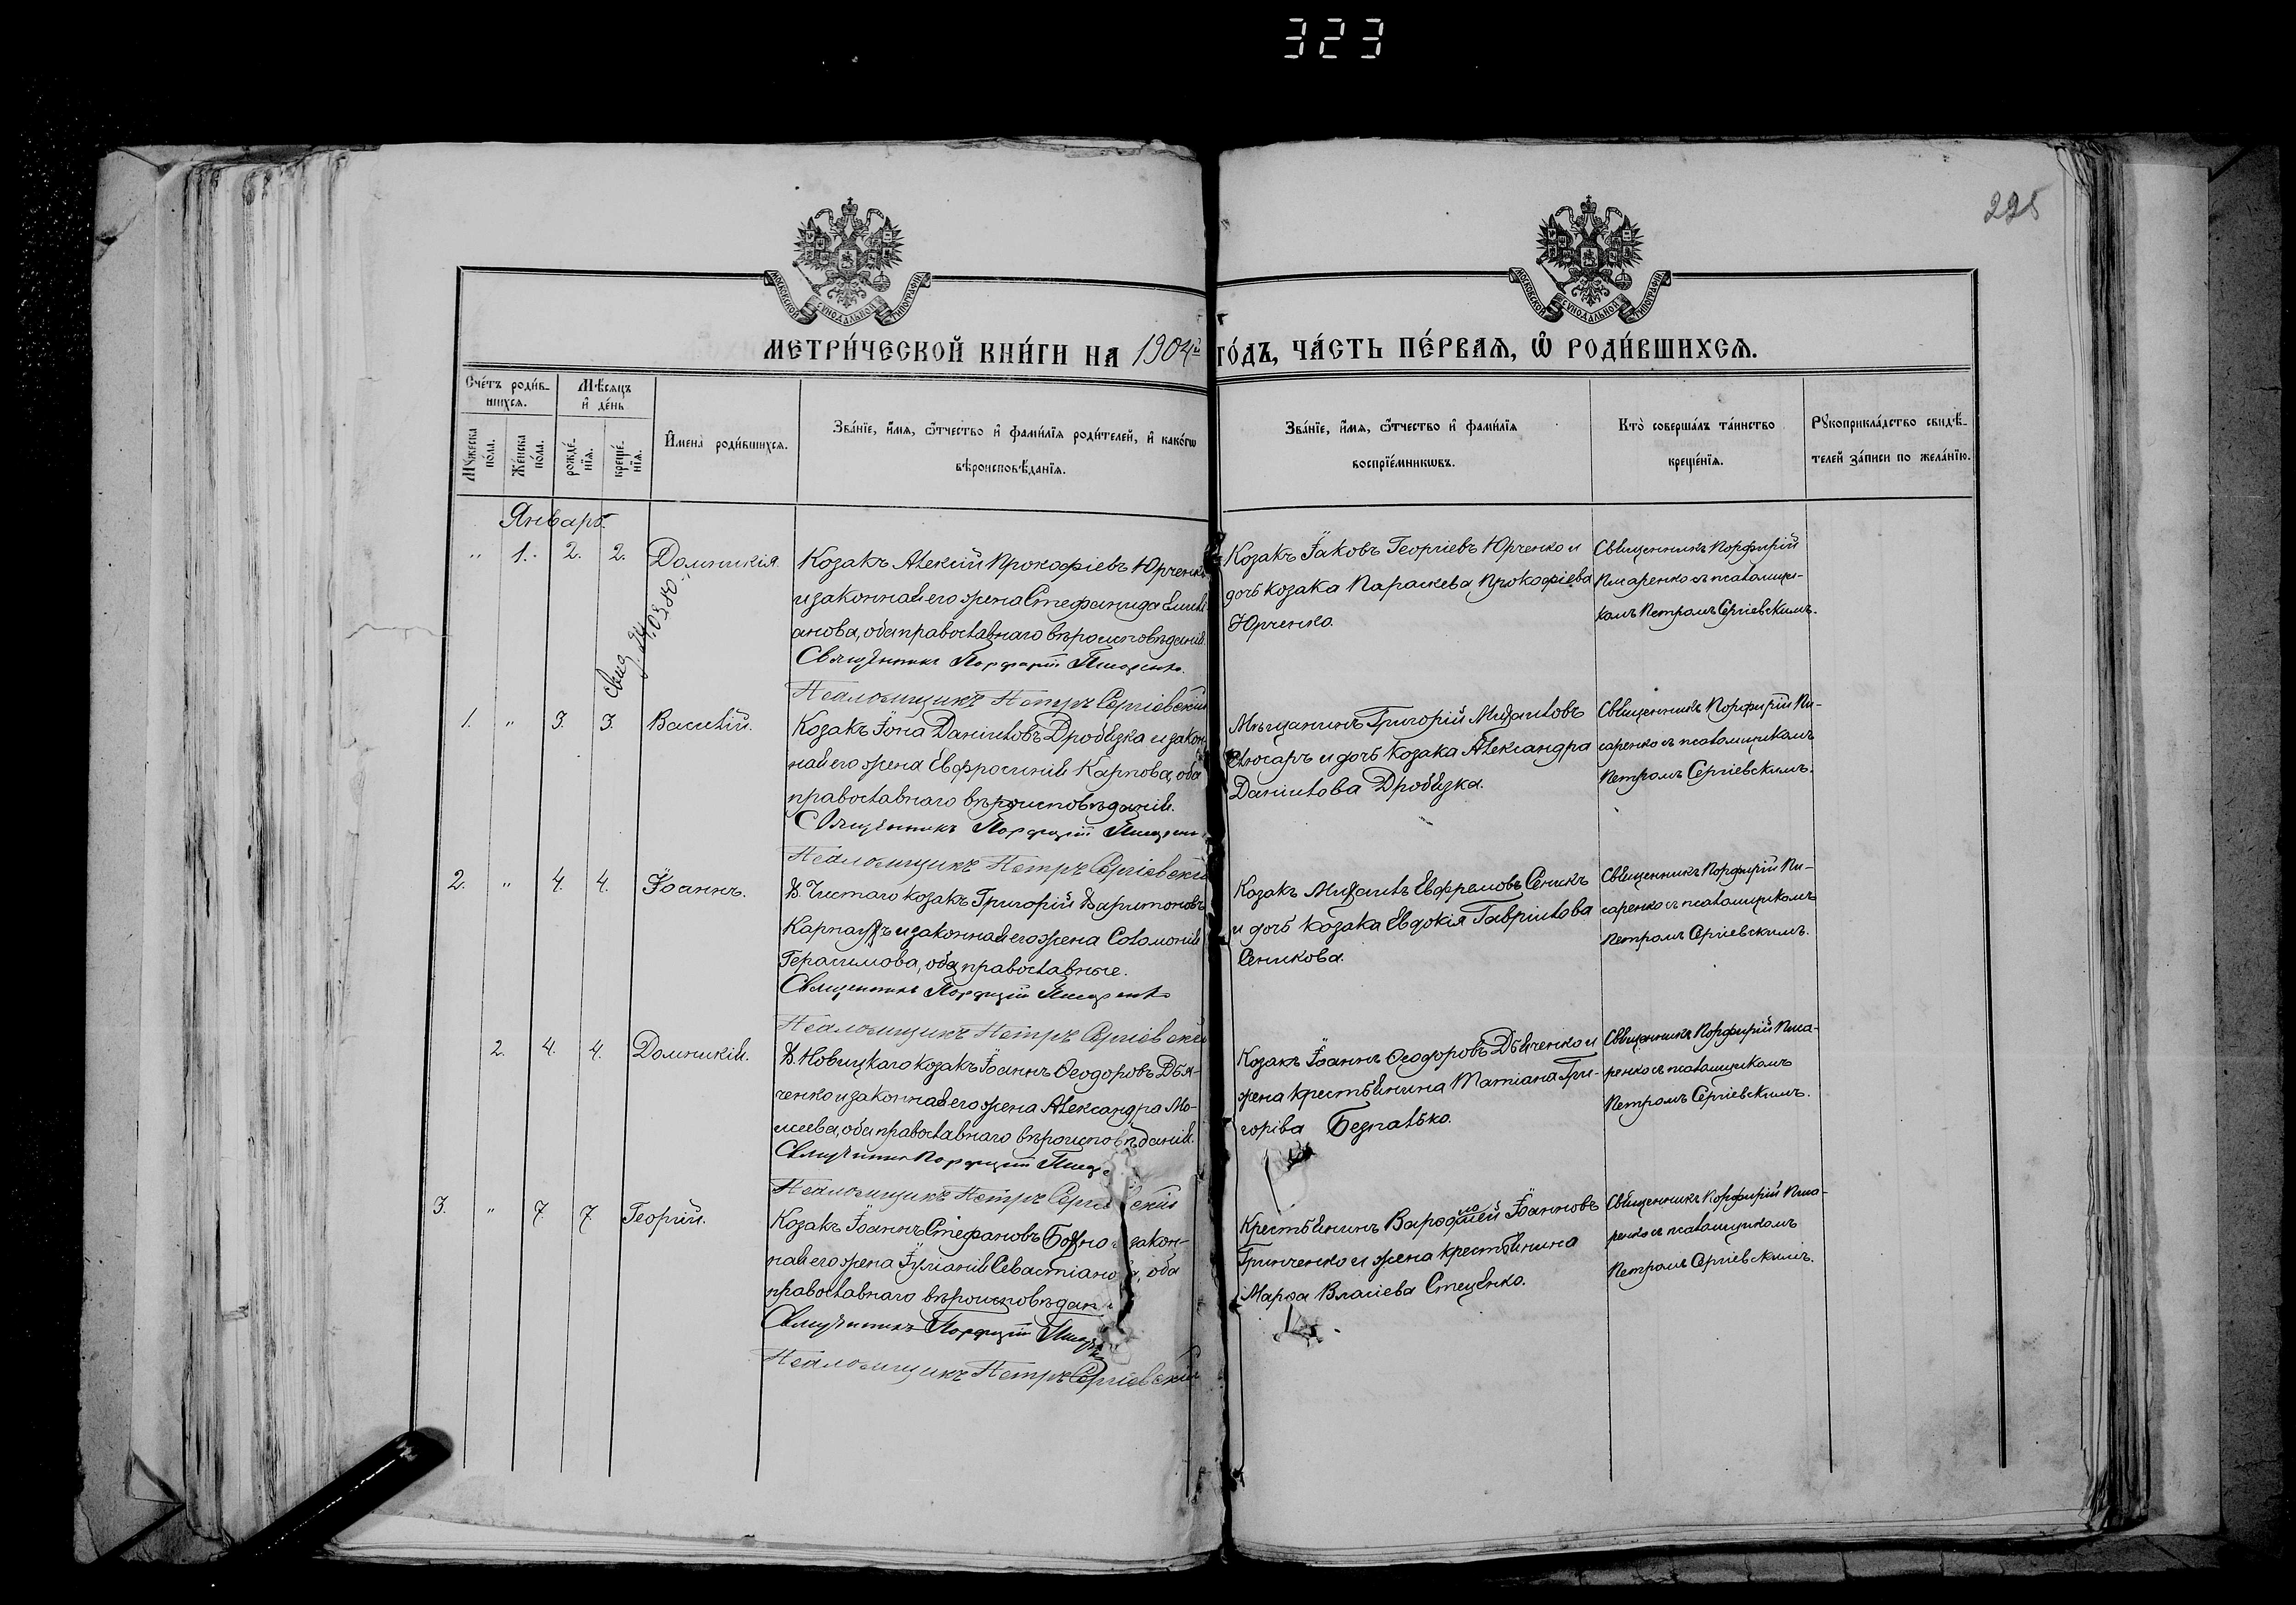 323
225
МОСКОВСКОЙ СѴНОДАЛЬНОЙ ТИПОГРАФІИ
МОСКОВСКОЙ СѴНОДАЛЬНОЙ ТИПОГРАФІИ
МЕТРИ́ЧЕСКОЙ КНИ́ГИ НА 1904й ГО́ДЪ, ЧА́СТЬ ПЕ́РВАЯ, Ѡ РОДИ́ВШИХСЯ.
Сче́тъ роди́в-
шихся.
Мѣ́сяцъ
и҆ де́нь
Мꙋ́жеска
по́ла.
Же́нска
по́ла.
рожде́-
нїя.
креще́-
нїя.
И҆мена̀ роди́вшихся.
Зва́нїе, и҆́мя, ѻ҆́тчество и҆ фами́лїя роди́телей, и҆ како́гѡ
вѣроисповѣ́данїя.
Зва́нїе, и҆́мя, ѻ҆́тчество и҆ фами́лїя
воспрїе́мникѡвъ.
Кто̀ соверша́лъ та́инство
креще́нїя.
Рꙋкоприкла́дство свидѣ́-
телей за́писи по жела́нїю.
Январь.
" 1. 2. 2. Домникія.
Козакъ Алексій Прокофіевъ Юрченко
и законная его жена Стефанида
анова, оба православнаго вѣроисповѣданія.
Священникъ Порфирій Писаренко.
Псаломщикъ Петръ Сергіевскій
Козакъ Іаковъ Георгіевъ Юрченко и
дочь козака Параскева Прокофіева
Юрченко.
Священникъ Порфирій
Писаренко съ псаломщи-
комъ Петромъ Сергіевскимъ.
1. " 3. 3. Василій.
Козакъ Іона Даніиловъ Дробязка и закон
ная его жена Евфросинія Карпова, оба
православнаго вѣроисповѣданія.
Священникъ Порфирій Писарен
Псаломщикъ Петръ Сергіевскій
Мѣщанинъ Григорій Михаиловъ
Слюсарь и дочь козака Александра
Даніилова Дробязка.
Священникъ Порфирій Пи-
саренко съ псаломщикомъ
Петромъ Сергіевскимъ.
2. " 4. 4. Іоаннъ.
Х. Чистаго козакъ Григорій Харитоновъ
и законная его жена Соломонія
Герасимова, оба православные.
Священникъ Порфирій Писаренко
Псаломщикъ Петръ Сергіевскій
Козакъ Михаилъ Евфремовъ Сеникъ
и дочь козака Евдокія Гавріилова
Сеникова.
Священникъ Порфирій Пи-
саренко съ псаломщикомъ
Петромъ Сергіевскимъ.
2. 4. 4. Домникія.
Х. Новицкаго козакъ Іоаннъ Ѳеодоровъ Дья-
ченко и законная его жена Александра Мо-
исеева, оба православнаго вѣроисповѣданія.
Священникъ Порфирій Писар
Псаломщикъ Петръ Сергіевскій
Козакъ Іоаннъ Ѳеодоровъ Дьяченко и
жена крестьянина Татіана Гри-
горіва Безпалько.
Священникъ Порфирій Писа-
ренко съ псаломщикомъ
Петромъ Сергіевскимъ.
3. " 7. 7. Георгій.
Козакъ Іоаннъ Стефановъ и закон-
ная его жена Іуліанія Севастіанова, оба
православнаго вѣроисповѣдан
Священникъ Порфирій Писаренко
Псаломщикъ Петръ Сергіевскій
Крестьянинъ Іоанновъ
Гринченко и жена крестьянина
Марѳа Власіева Стеценко.
Священникъ Порфирій Писа-
ренко съ псаломщикомъ
Петромъ Сергіевскимъ.